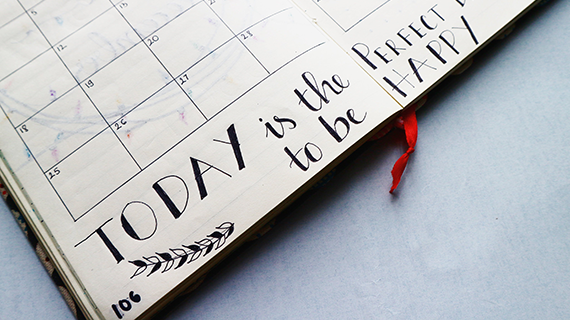 5
12
18 19 20
25 26 27 28
TODAY is the PERFECT
to be HAPPY
106